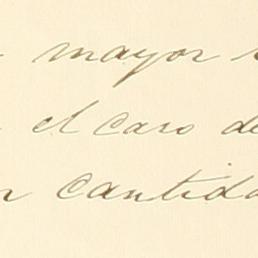 mayor
el caso de
cantida